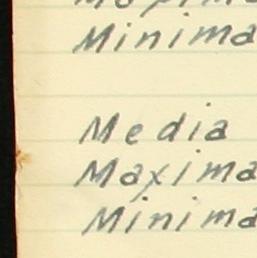 Minima
Media
Maxima
Minima